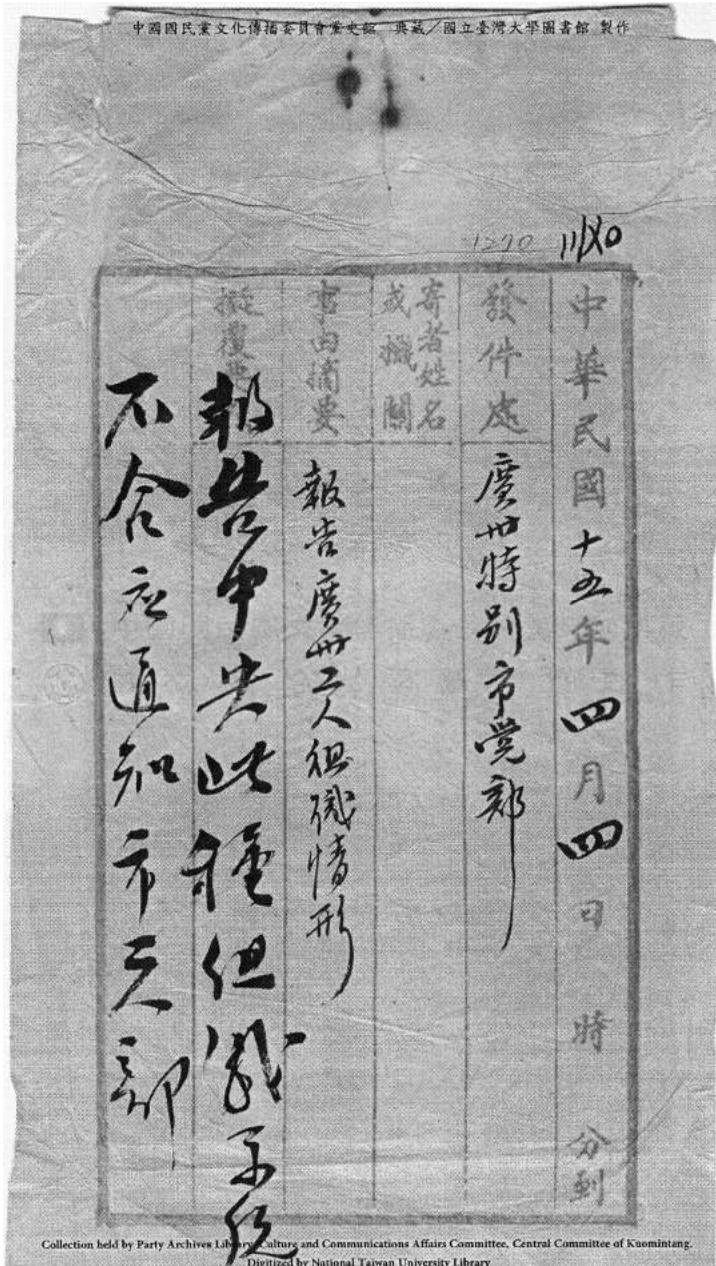 中國國民黨文化傳播委員會黨史館 典藏／國立臺灣大學圖書館 製作
1270
中華民國十五年四月四日 時 分到
發件處
廣州特別市党部
寄者姓名
或機關
事由摘要
報告廣州工人組織情形
擬覆要
報告中央此種組織系統
不合应通知市工人部
Collection held by Party Archives Library, Culture and Communications Affairs Committee, Central Committee of Kuomintang.
Digitized by National Taiwan University Library